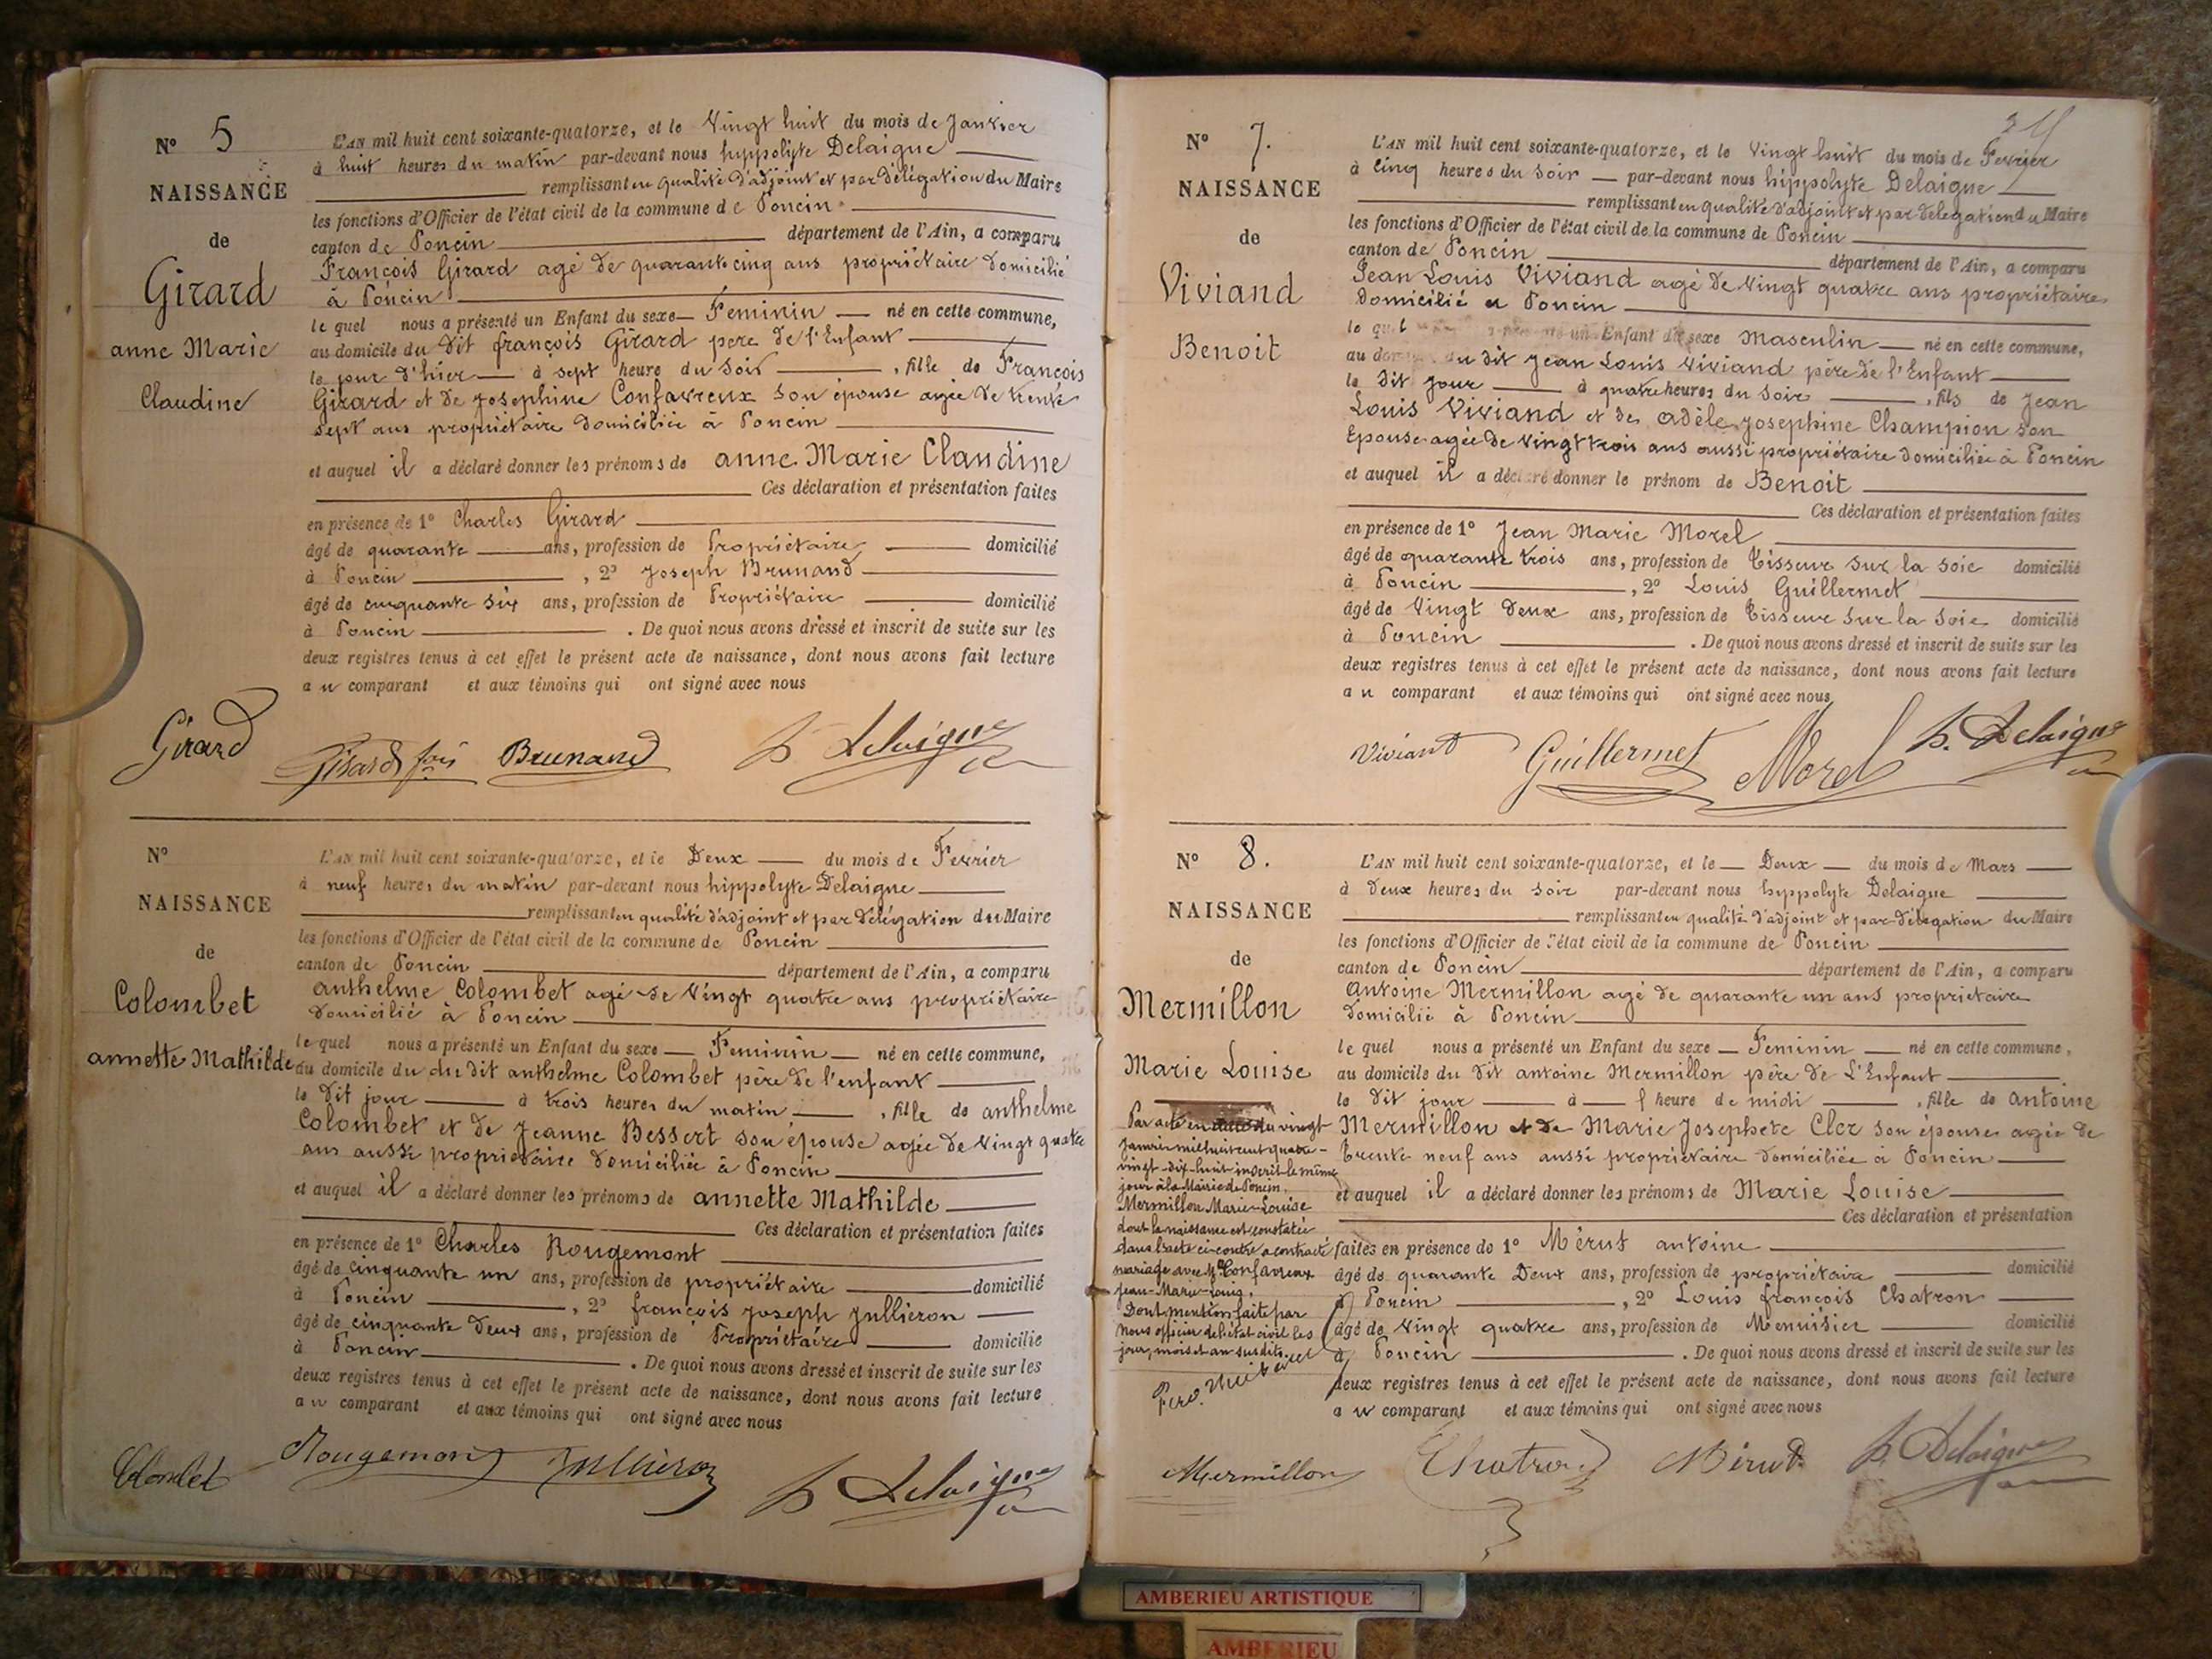 Nº 5
NAISSANCE
de
Girard
anne Marie
Claudine
L'AN mil huit cent soixante-quatorze, et le Vingt huit du mois de Janvier
à huit heures du matin par-devant nous hyppolyte Delaigue
remplissant en qualité d'adjoint et par délégation du Maire
les fonctions d'Officier de l'état civil de la commune de Poncin
canton de Poncin département de l'Ain, a comparu
François Girard agé de quarante cinq ans propriétaire domicilié
à Poncin
lequel nous a présenté un Enfant du sexe Feminin né en cette commune,
au domicile du dit françois Girard pere de l'Enfant
le jour d'hier à sept heure du soir , fille de François
Girard et de Josephine Confavreux son épouse agée de trente
sept ans propriétaire domiciliée à Poncin
et auquel il a déclaré donner les prénoms de anne Marie Claudine
Ces déclaration et présentation faites
en présence de 1º Charles Girard
âgé de quarante ans, profession de Propriétaire domicilié
à Poncin , 2º Joseph Brunand
âgé de cinquante six ans, profession de Propriétaire domicilié
à Poncin . De quoi nous avons dressé et inscrit de suite sur les
deux registres tenus à cet effet le présent acte de naissance, dont nous avons fait lecture
au comparant et aux témoins qui ont signé avec nous
Girard Girard fois Brunand h Delaigue
Nº
NAISSANCE
de
Colombet
annette Mathilde
L'AN mil huit cent soixante-quatorze, et le Deux du mois de Fevrier
à neuf heures du matin par-devant nous hippolyte Delaigue
remplissant en qualité d'adjoint et par délégation du Maire
les fonctions d'Officier de l'état civil de la commune de Poncin
canton de Poncin département de l'Ain, a comparu
anthelme Colombet agé de Vingt quatre ans propriétaire
domicilié à Poncin
lequel nous a présenté un Enfant du sexe Feminin né en cette commune,
au domicile du du dit anthelme Colombet père de l'enfant
le dit jour à trois heures du matin , fille de anthelme
Colombet et de Jeanne Bessert son épouse agée de Vingt quatre
ans aussi propriétaire domiciliée à Poncin
et auquel il a déclaré donner les prénoms de annette Mathilde
Ces déclaration et présentation faites
en présence de 1º Charles Rougemont
âgé de cinquante un ans, profession de propriétaire domicilié
à Poncin , 2º françois joseph jullieron
âgé de cinquante deux ans, profession de Propriétaire domicilié
à Poncin . De quoi nous avons dressé et inscrit de suite sur les
deux registres tenus à cet effet le présent acte de naissance, dont nous avons fait lecture
au comparant et aux témoins qui ont signé avec nous
Colombet Rougemont Jullieron h Delaigue
Nº 7.
NAISSANCE
de
Viviand
Benoit
L'AN mil huit cent soixante-quatorze, et le Vingt huit du mois de Fevrier
à cinq heures du soir par-devant nous hippolyte Delaigue
remplissant en qualité d'adjoint et par délégation du Maire
les fonctions d'Officier de l'état civil de la commune de Poncin
canton de Poncin département de l'Ain, a comparu
Jean Louis Viviand agé de Vingt quatre ans propriétaire
domicilié a Poncin
lequel présenté un Enfant du sexe Masculin né en cette commune,
au du dit jean Louis Viviand père de l'Enfant
le dit jour à quatre heures du soir , fils de Jean
Louis Viviand et de adèle Josephine Champion son
Epouse agée de Vingt trois ans aussi propriétaire domiciliée à Poncin
et auquel il a déclaré donner le prénom de Benoit
Ces déclaration et présentation faites
en présence de 1º Jean Marie Morel
âgé de quarante trois ans, profession de tisseur sur la soie domicilié
à Poncin , 2º Louis Guillermet
âgé de Vingt deux ans, profession de tisseur sur la soie domicilié
à Poncin . De quoi nous avons dressé et inscrit de suite sur les
deux registres tenus à cet effet le présent acte de naissance, dont nous avons fait lecture
au comparant et aux témoins qui ont signé avec nous
Viviant Guillermet Morel h. Delaigue
Nº 8.
NAISSANCE
de
Mermillon
Marie Louise
Par acte du vingt
janvier mil huit cent quatre-
vingt-dix-huit inscrit le même
jour à la Mairie de Poncin,
Mermillon Marie-Louise
dont la naissance est constatée
dans l'acte ci-contre a contracté
mariage avec Mr Confavreux
Jean-Marie-Louis.
Dont mention faite par
nous officier de l'état civil les
jour, mois et an susdits.
L'AN mil huit cent soixante-quatorze, et le Deux du mois de Mars
à deux heures du soir par-devant nous hyppolyte Delaigue
remplissant en qualité d'adjoint et par délégation du Maire
les fonctions d'Officier de l'état civil de la commune de Poncin
canton de Poncin département de l'Ain, a comparu
Antoine Mermillon agé de quarante un ans propriétaire
domicilié à Poncin
lequel nous a présenté un Enfant du sexe Feminin né en cette commune,
au domicile du dit antoine Mermillon père de L'Enfant
le dit jour à heure de midi , fille de antoine
Mermillon et de Marie Josephete Cler son épouse agée de
trente neuf ans aussi propriétaire domiciliée à Poncin
et auquel il a déclaré donner les prénoms de Marie Louise
Ces déclaration et présentation
faites en présence de 1º Mérut antoine
âgé de quarante Deux ans, profession de propriétaire domicilié
à Poncin , 2º Louis françois Chatron
âgé de Vingt quatre ans, profession de Menuisier domicilié
à Poncin . De quoi nous avons dressé et inscrit de suite sur les
deux registres tenus à cet effet le présent acte de naissance, dont nous avons fait lecture
au comparant et aux témoins qui ont signé avec nous
Mermillon Chatron Mérut h. Delaigue
AMBERIEU ARTISTIQUE
AMBERIEU